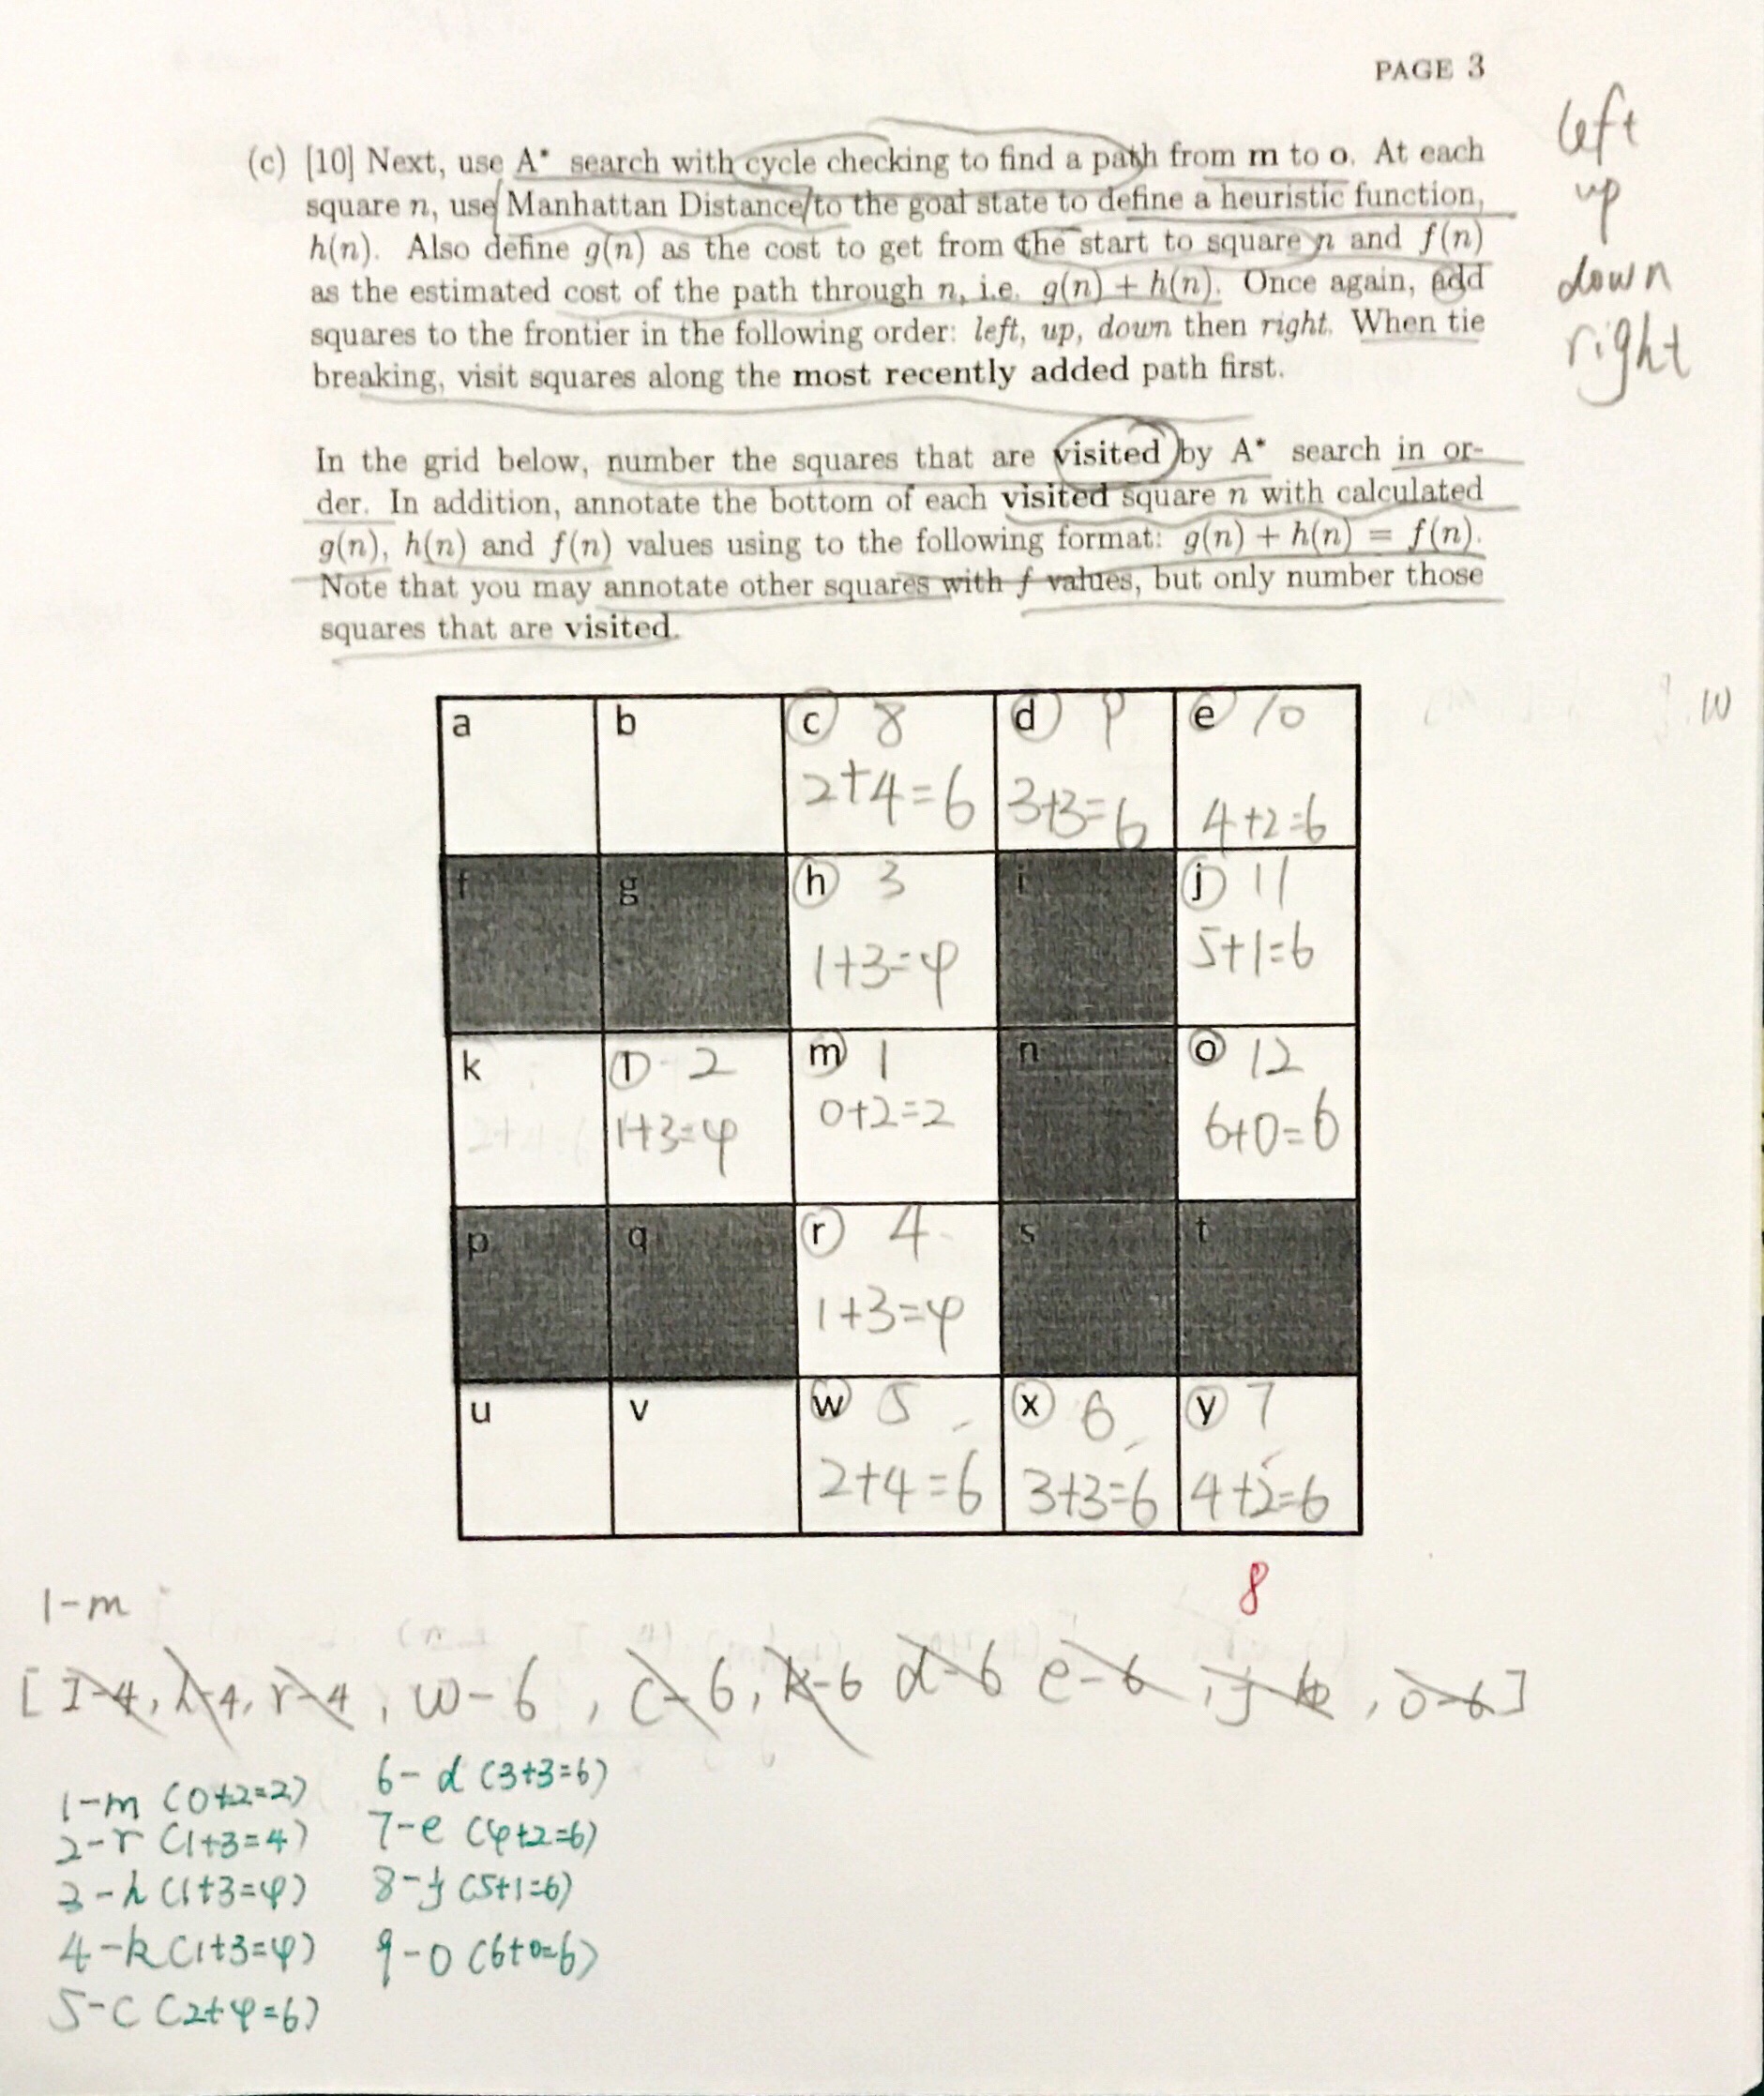 PAGE 3
left
up
down
right
(c) [10] Next, use A* search with cycle checking to find a path from m to o. At each
square n, use Manhattan Distance to the goal state to define a heuristic function,
h(n). Also define g(n) as the cost to get from the start to square n and f(n)
as the estimated cost of the path through n, i.e. g(n) + h(n). Once again, add
squares to the frontier in the following order: left, up, down then right. When tie
breaking, visit squares along the most recently added path first.
In the grid below, number the squares that are visited by A* search in or-
der. In addition, annotate the bottom of each visited square n with calculated
g(n), h(n) and f(n) values using to the following format: g(n) + h(n) = f(n).
Note that you may annotate other squares with f values, but only number those
squares that are visited.
a b c 8 d 9 e 10
2+4=6 3+3=6 4+2=6
f g h 3 i j 11
1+3=4 5+1=6
k l 2 m 1 n o 12
1+3=4 0+2=2 6+0=6
p q r 4 s t
1+3=4
u v w 5 x 6 y 7
2+4=6 3+3=6 4+2=6
8
1-m
[I-4, h-4, r-4, w-6, c-6, k-6 d-6 e-6, j-6, o-6]
1-m (0+2=2)
2-r (1+3=4)
3-h (1+3=4)
4-k (1+3=4)
5-c (2+4=6)
6-d (3+3=6)
7-e (4+2=6)
8-j (5+1=6)
9-o (6+0=6)